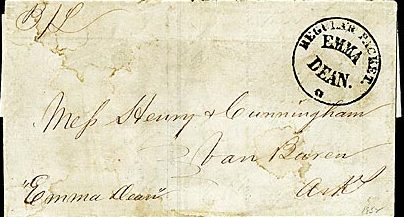 B/L
REGULAR PACKET.
EMMA
DEAN.
Mess Henry & Cunningham
Van Buren
"Emma Dean"
Arks